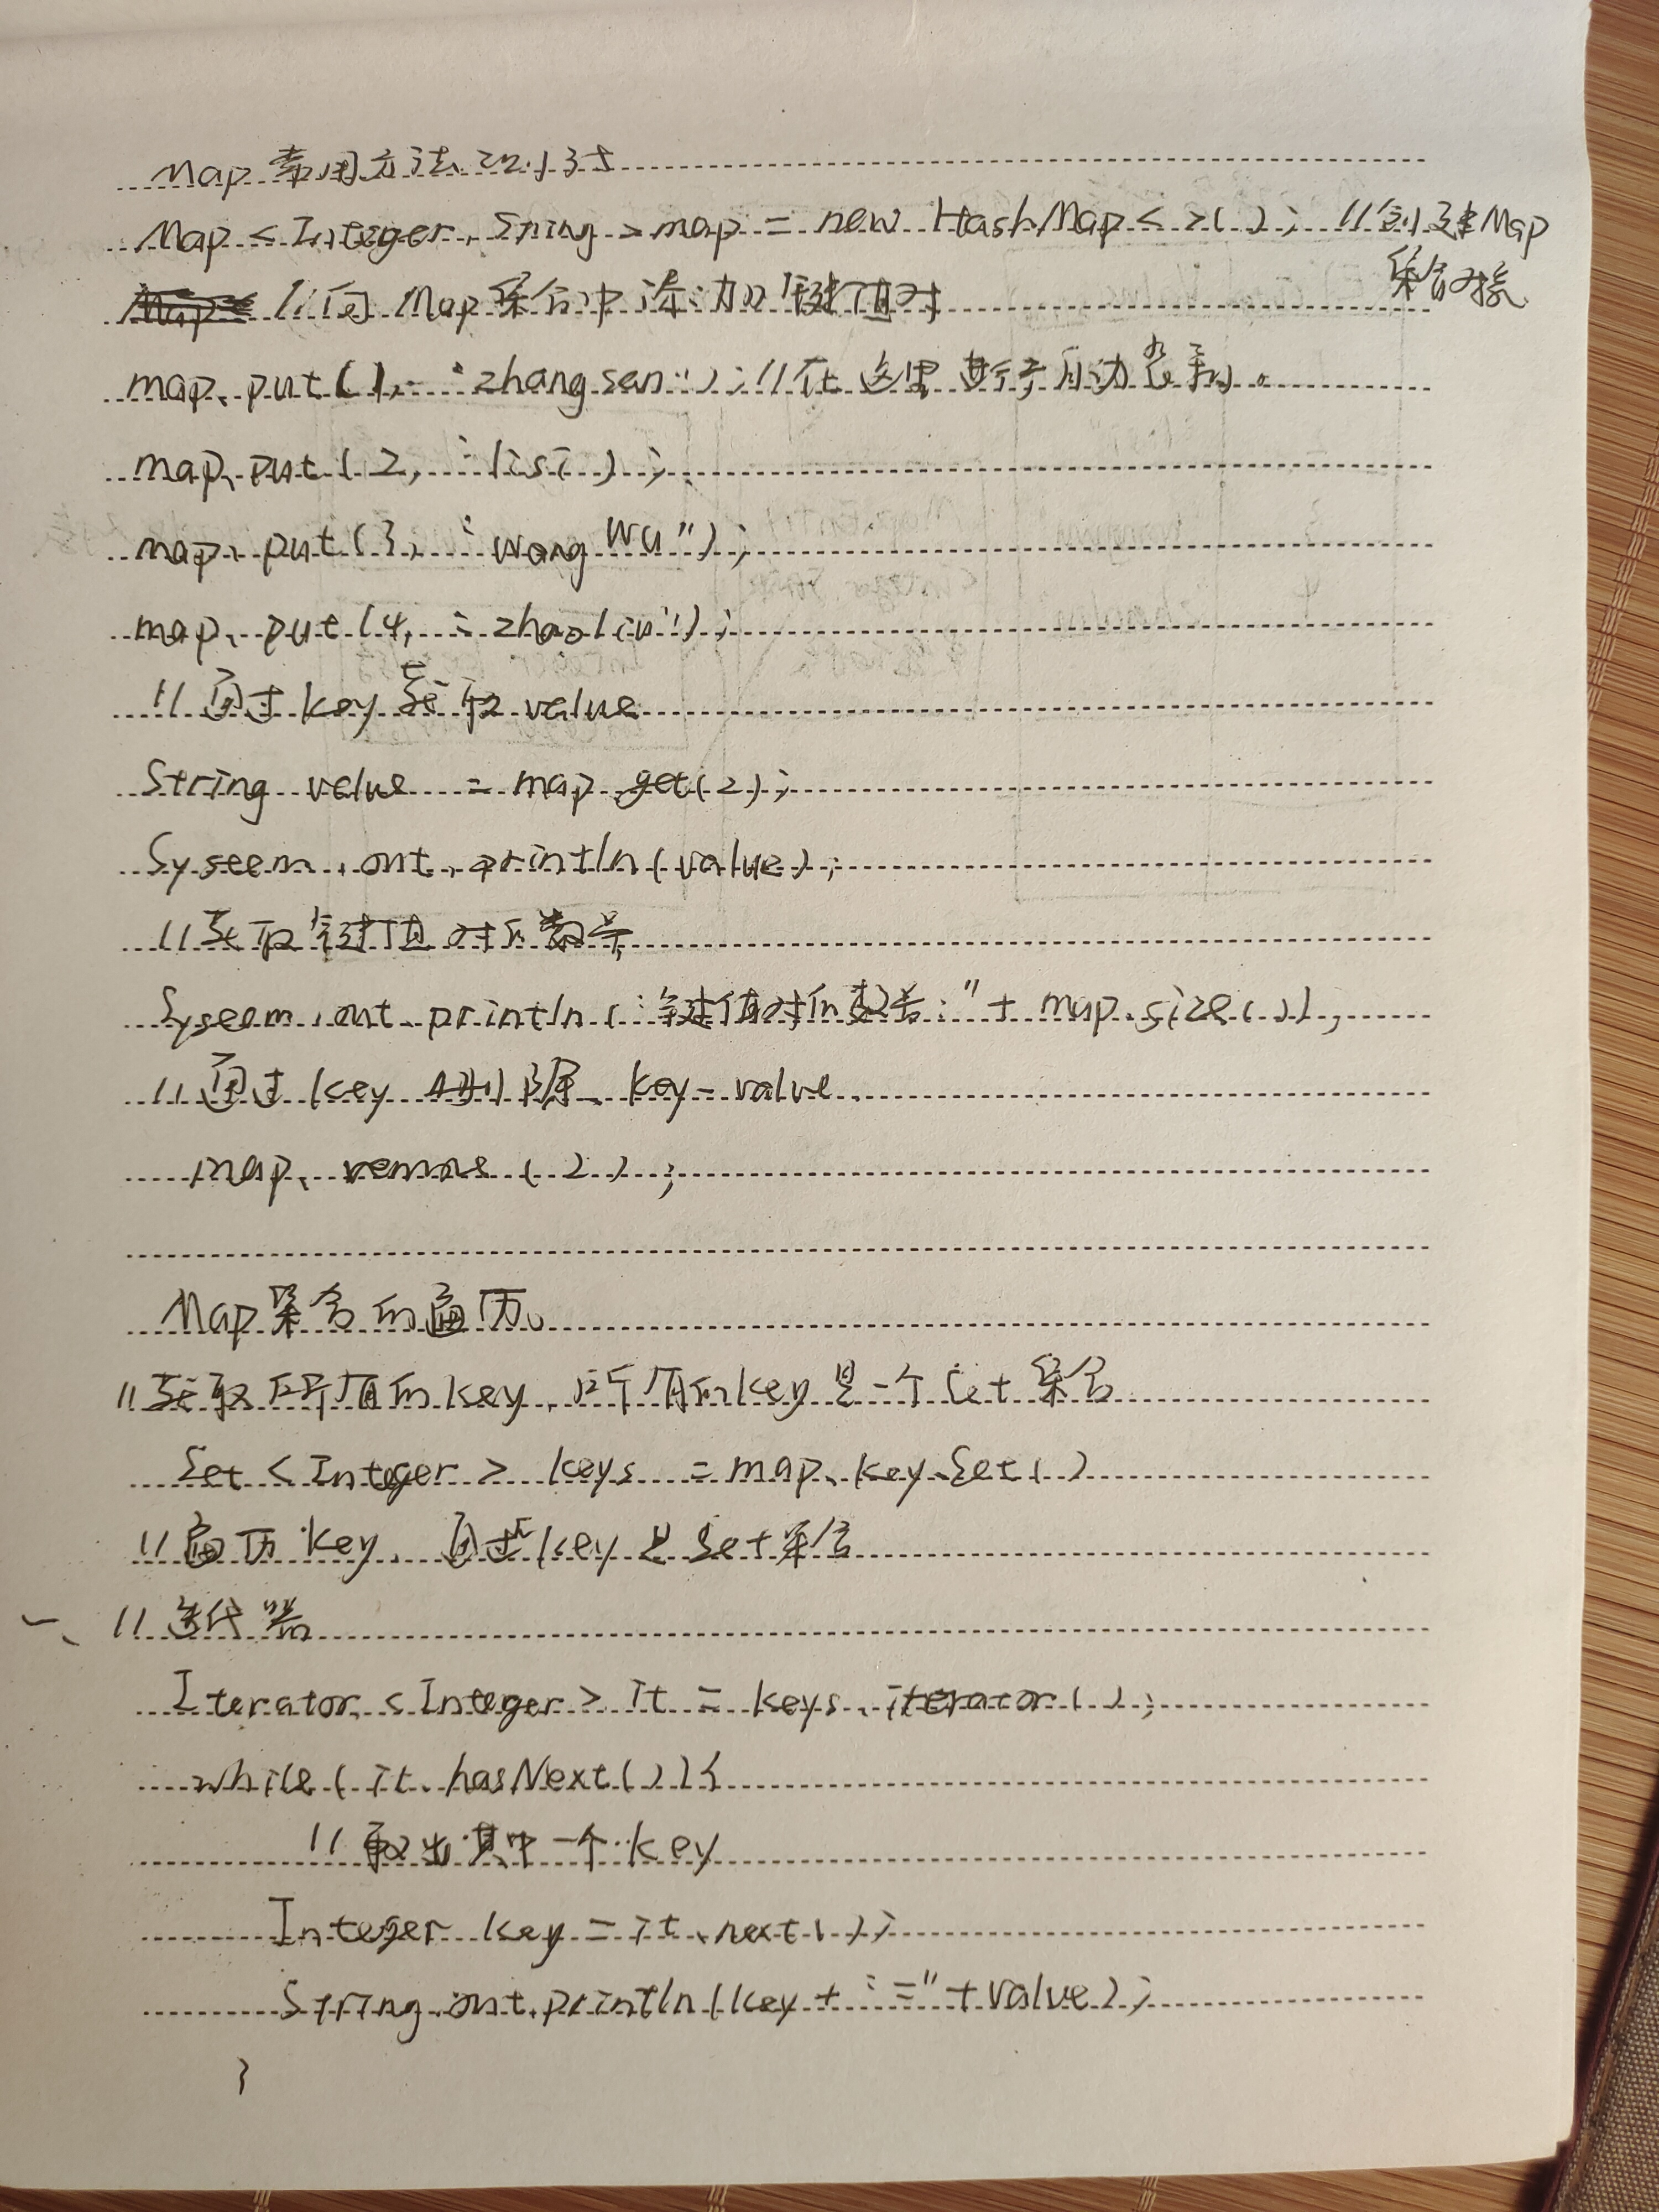 Map 常用方法测试
Map<Integer,String>map = new HashMap<>(); //创建Map
集合对象
//向 Map集合中添加键值对
map.put(1, "zhangsan"); //在这里进行了自动装箱。
map.put(2, "lisi");
map.put(3, "wangwu");
map.put(4, "zhaoliu");
//通过key获取value
String value = map.get(2);
System.out.println(value);
//获取键值对的数量
System.out.println("键值对的数量:"+ map.size());
//通过key删除 key-value
map.remove(2);
Map集合的遍历。
//获取所有的key,所有的key是一个Set集合
Set<Integer> keys = map.keySet()
//遍历key, 通过key是Set集合
一、//迭代器
Iterator<Integer> it = keys.iterator();
while(it.hasNext()){
//取出其中一个key
Integer key = it.next();
String.out.println(key + "=" + value);
}